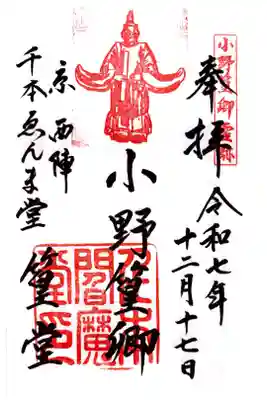 小野篁卿霊跡
奉拝
令和七年
十二月十七日
小野篁卿
篁堂
京西陣
千本ゑんま堂